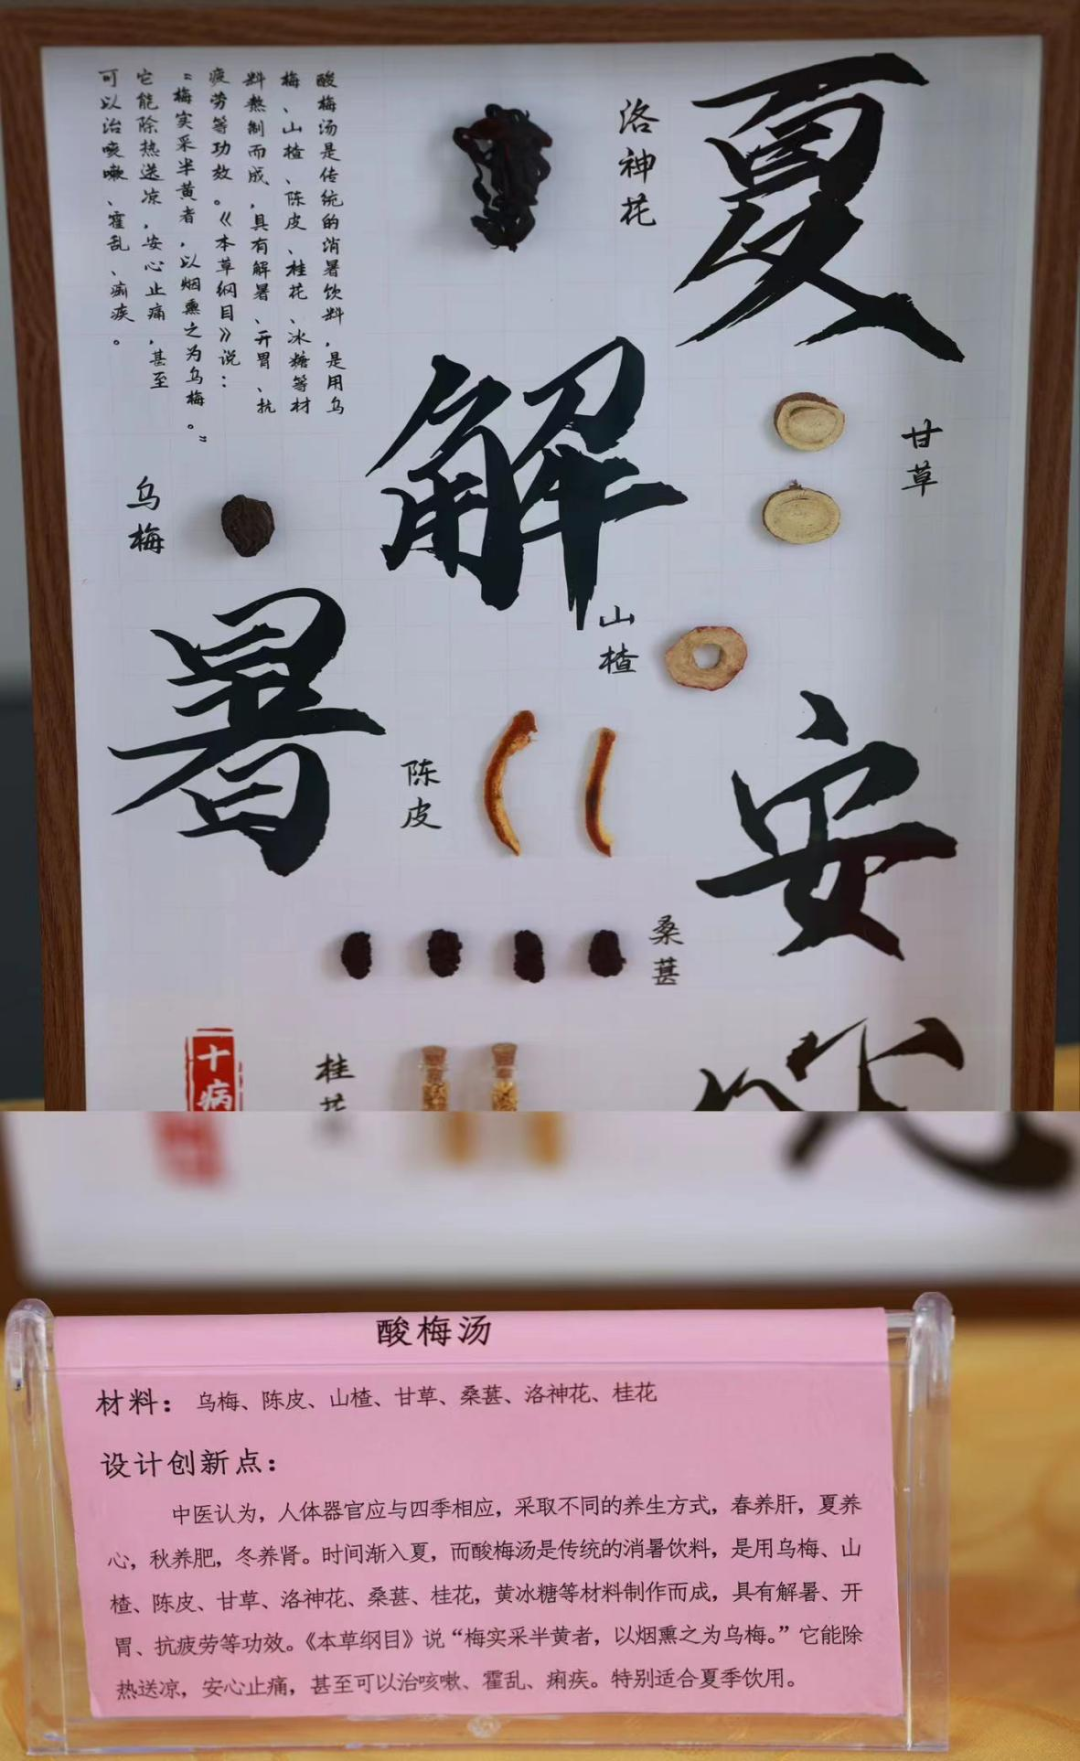 夏
解
暑
安
洛神花
甘草
酸梅汤是传统的消暑饮料，是用乌
梅、山楂、陈皮、桂花、冰糖等材
料熬制而成，具有解暑、开胃、抗
疲劳等功效。《本草纲目》说：
“梅实采半黄者，以烟熏之为乌梅。”
它能除热送凉，安心止痛，甚至
可以治咳嗽、霍乱、痢疾。
乌梅
山楂
陈皮
桑葚
桂花
十病
酸梅汤
材料：乌梅、陈皮、山楂、甘草、桑葚、洛神花、桂花
设计创新点：
中医认为，人体器官应与四季相应，采取不同的养生方式，春养肝，夏养
心，秋养肥，冬养肾。时间渐入夏，而酸梅汤是传统的消暑饮料，是用乌梅、山
楂、陈皮、甘草、洛神花、桑葚、桂花，黄冰糖等材料制作而成，具有解暑、开
胃、抗疲劳等功效。《本草纲目》说“梅实采半黄者，以烟熏之为乌梅。”它能除
热送凉，安心止痛，甚至可以治咳嗽、霍乱、痢疾。特别适合夏季饮用。